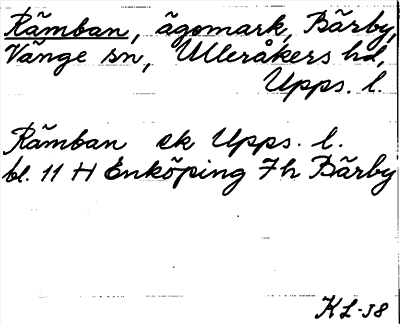 Rämban, ägomark, Bärby,
Vänge sn, Ulleråkers hd,
Upps. l.
Rämban ek Upps. l.
bl. 11 H Enköping 7h Bärby
KL-38